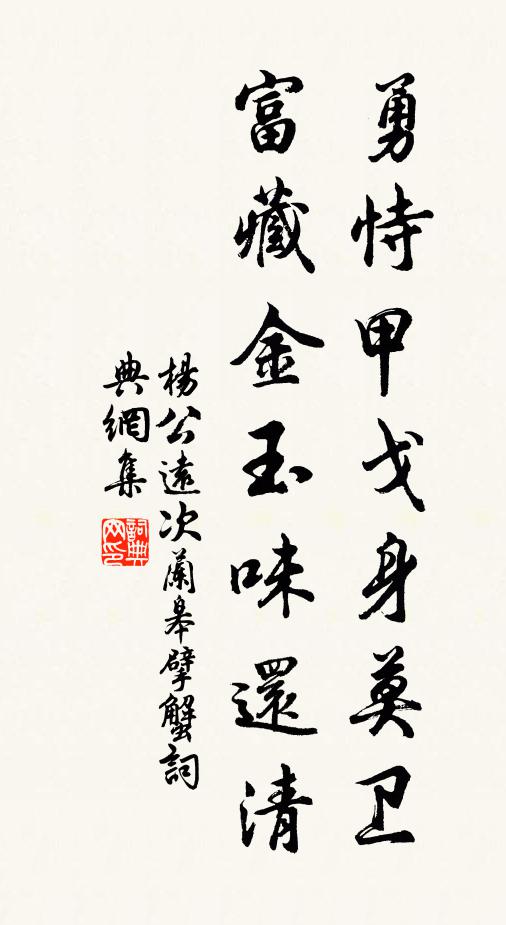 勇恃甲戈身莫卫
富藏金玉味還清
楊公遠次蘭皋擘蟹詞
典網集
詞典网印